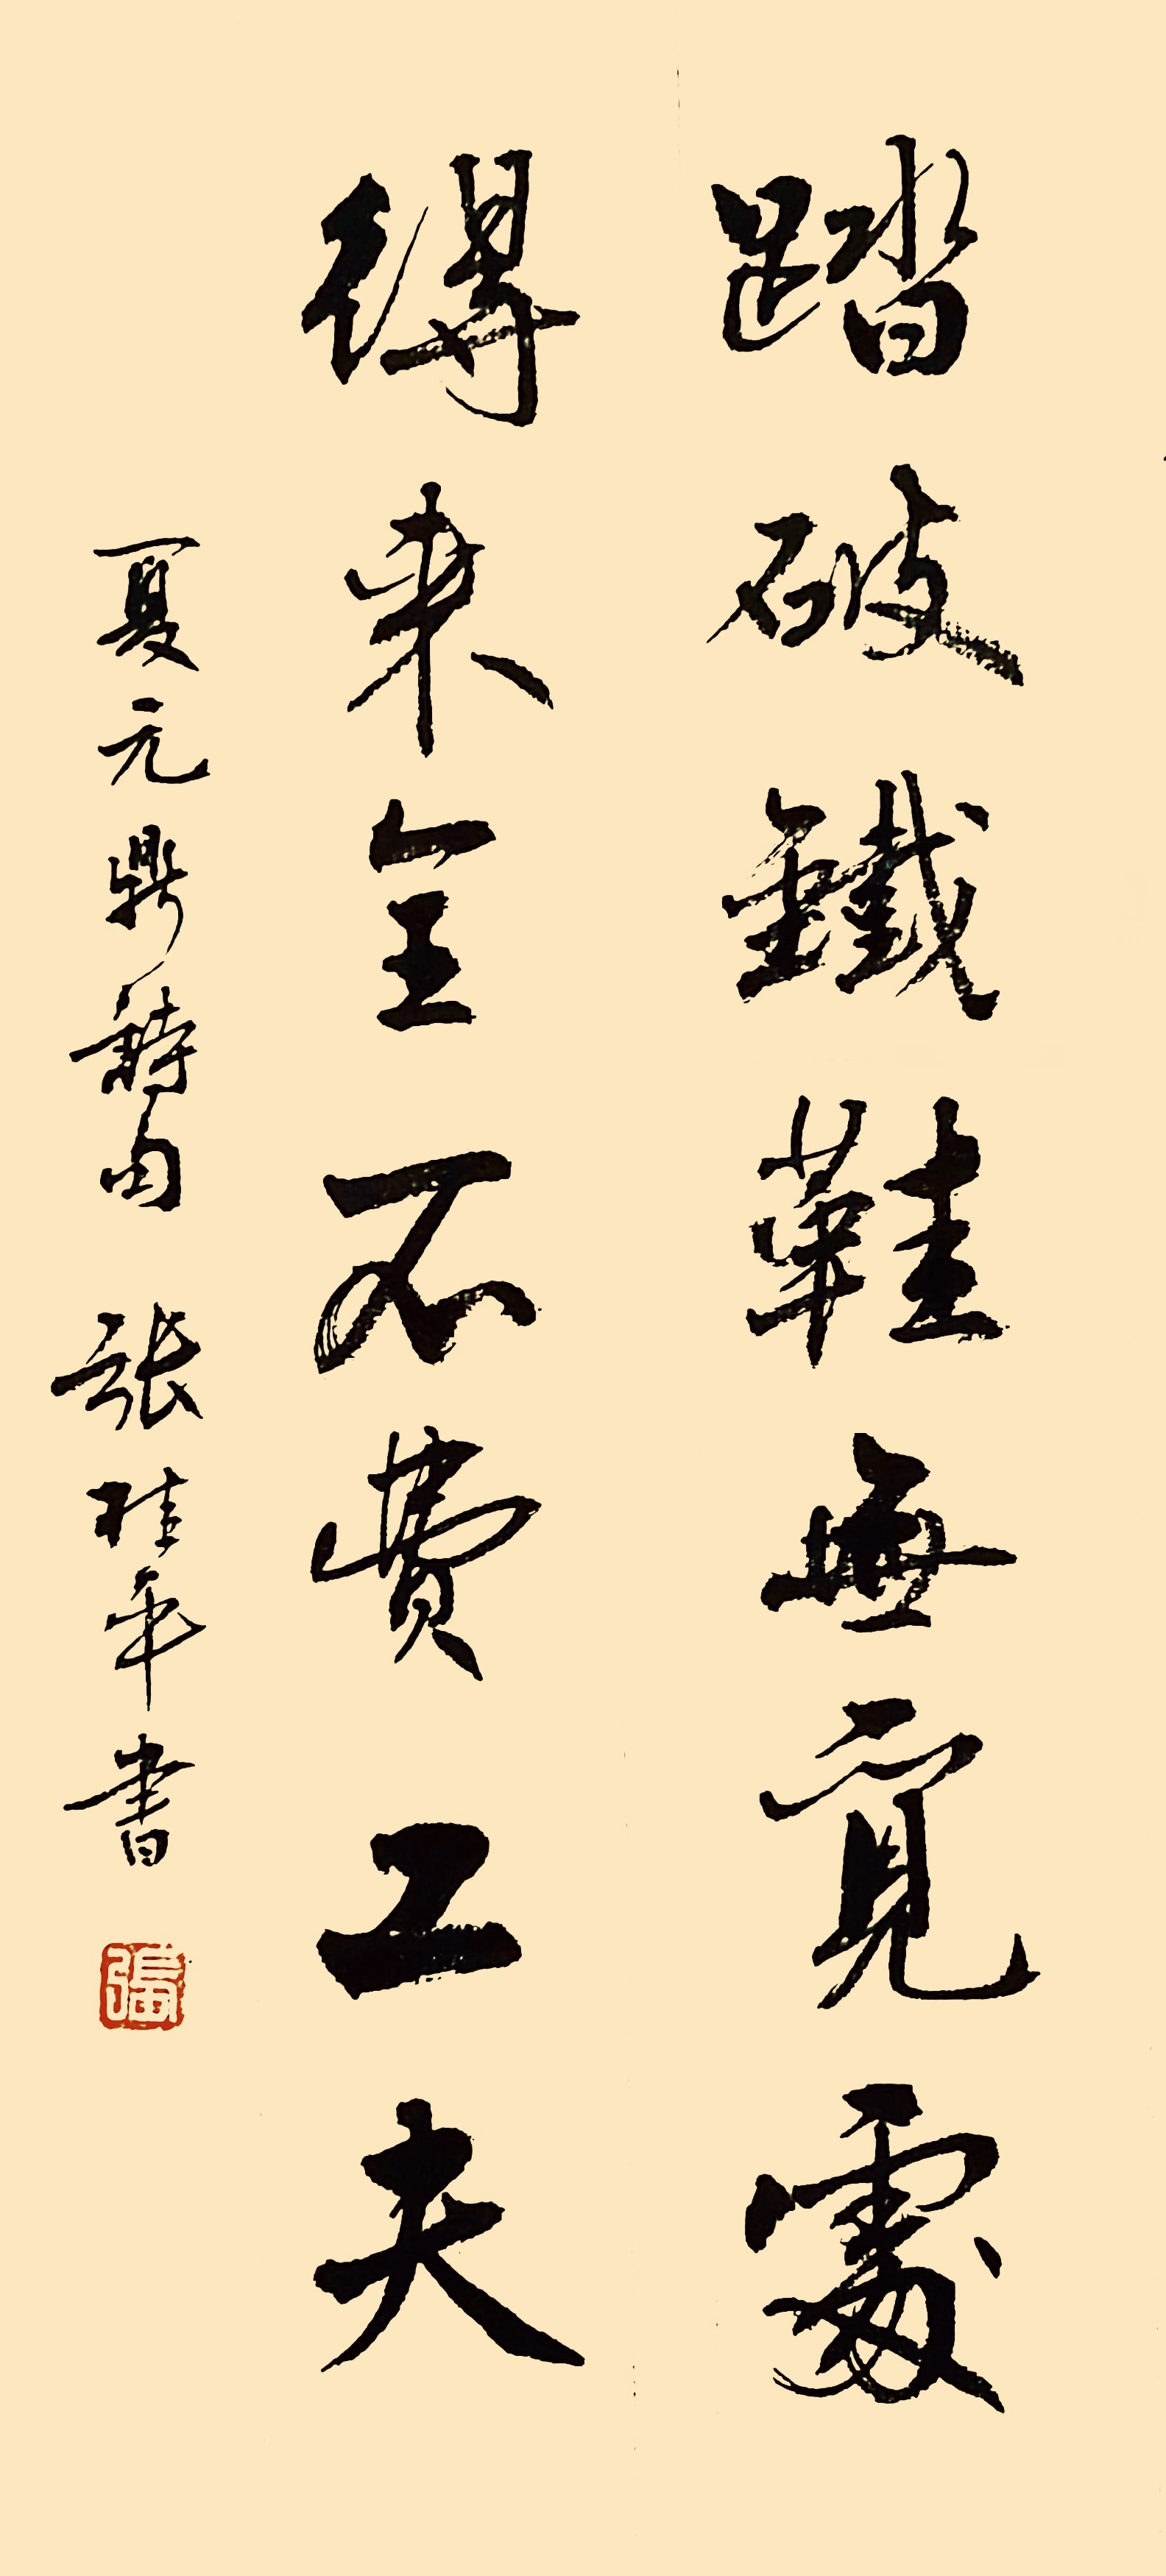 踏破鐵鞋無覓處
得来全不費工夫
夏元鼎詩句 張桂平书
張